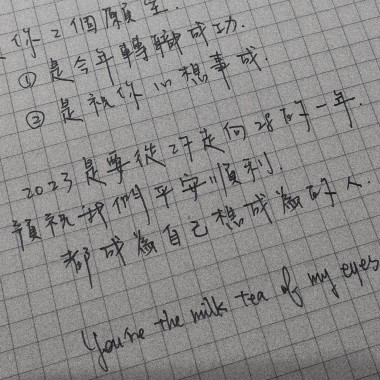 你2個願望.
① 是今年轉職成功.
② 是祝你心想事成.
2023是要從27走向28的一年.
預祝我們平安順利.
都成為自己想成為的人.
You're the milk tea of my eyes